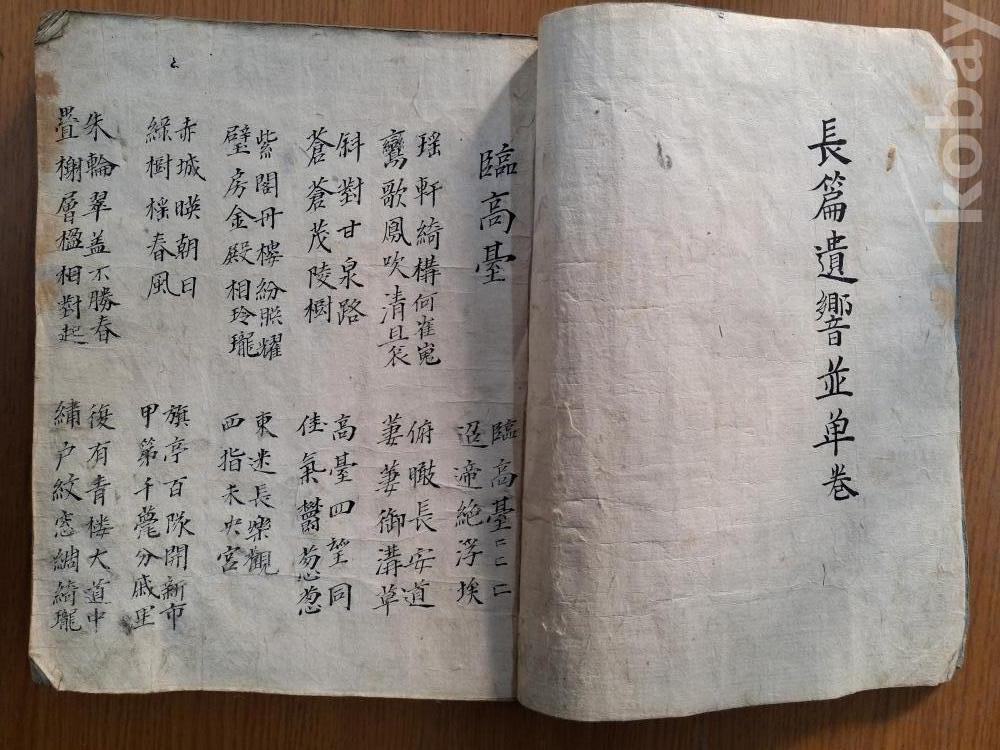 長篇遺響並单卷
臨高臺
臨高臺二二二
迢遆絶浮埃
瑶軒綺構何崔嵬
鸞歌鳳吹清且哀
俯瞰長安道
萋萋御溝草
斜對甘泉路
蒼蒼茂陵樹
高臺四望同
佳氣欝葱葱
紫閣丹樓紛照耀
璧房金殿相玲瓏
東迷長樂觀
西指未央宮
赤城暎朝日
綠樹搖春風
旗亭百隊開新市
甲第千甍分戚里
朱輪翠盖不勝春
疊榭層楹相對起
復有青楼大道中
繡户紋窓綢綺瓏
kobay